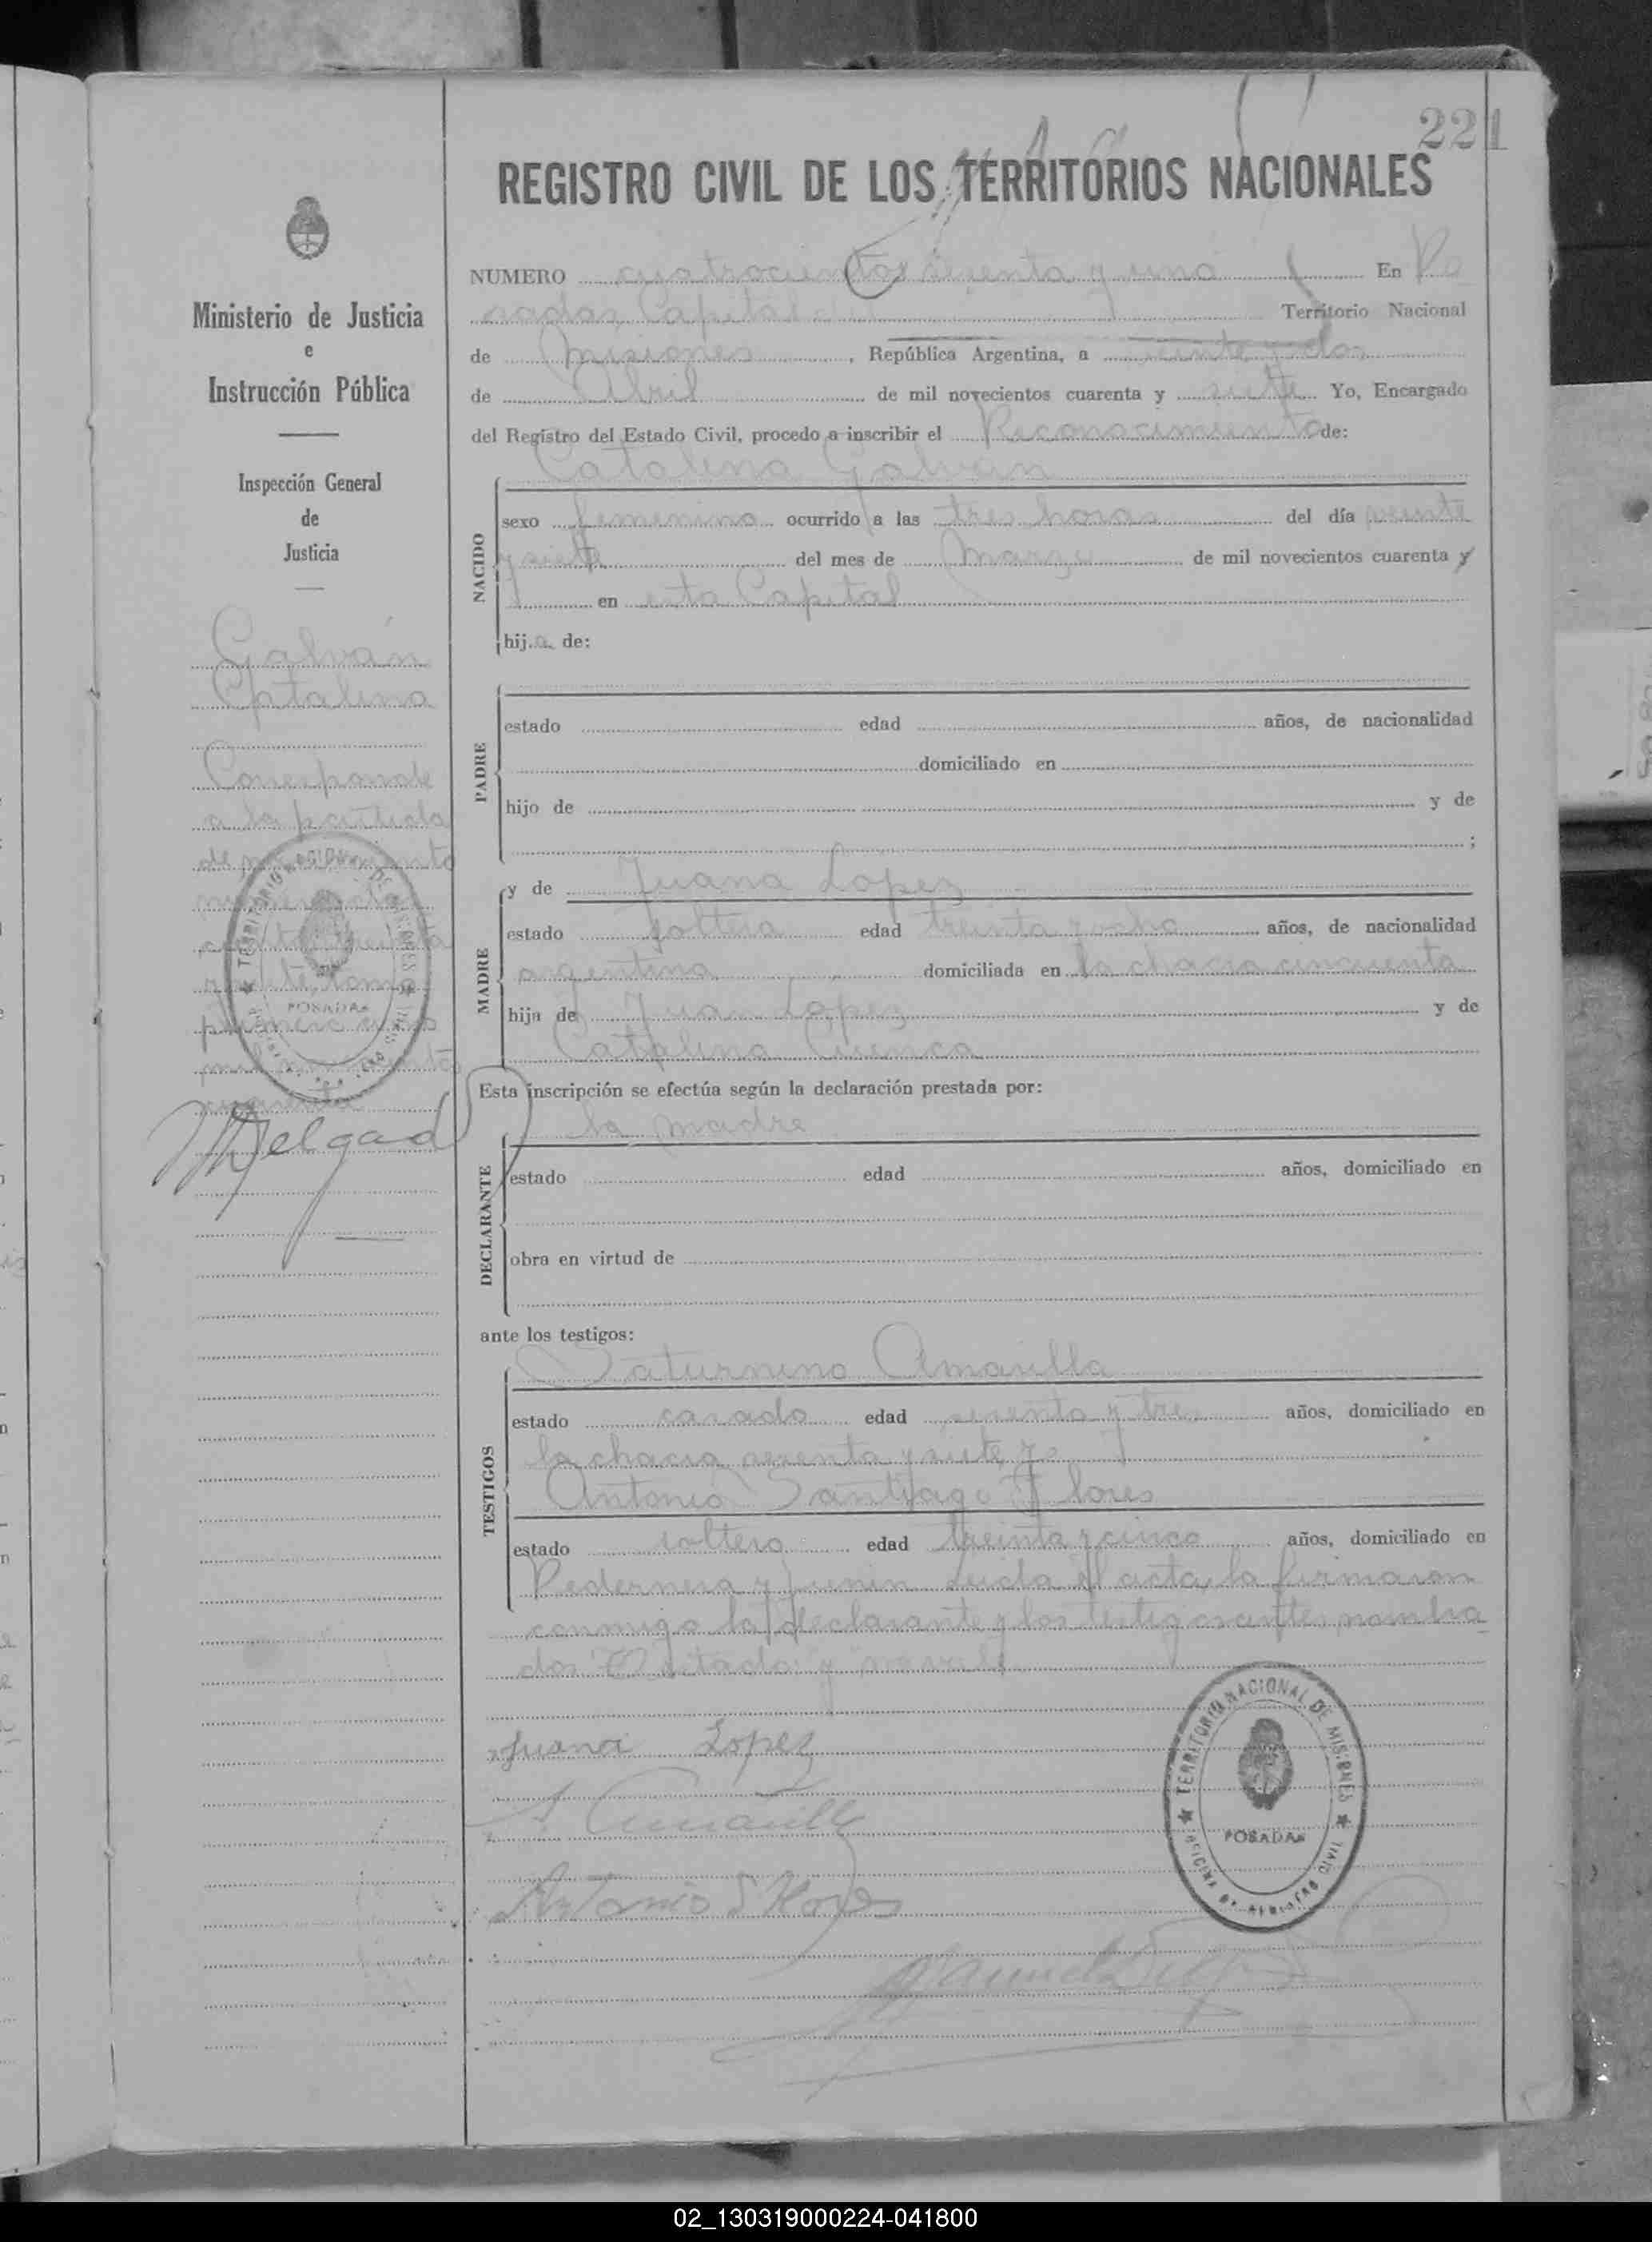 221
REGISTRO CIVIL DE LOS TERRITORIOS NACIONALES
NUMERO cuatrocientos sesenta y uno En Po
sadas Capital del Territorio Nacional
de Misiones, República Argentina, a veinte y dos
de Abril de mil novecientos cuarenta y siete Yo, Encargado
del Registro del Estado Civil, procedo a inscribir el Reconocimiento de:
Catalina Galván
NACIDO
sexo femenino ocurrido a las tres horas del día veinte
y siete del mes de Marzo de mil novecientos cuarenta y
en esta Capital
hija de:
PADRE
estado edad años, de nacionalidad
domiciliado en
hijo de y de
;
MADRE
y de Juana Lopez
estado soltera edad treinta y ocho años, de nacionalidad
argentina domiciliada en la chacra cincuenta
hija de Juan Lopez y de
Catalina Cuenca
Esta inscripción se efectúa según la declaración prestada por:
la madre
DECLARANTE
estado edad años, domiciliado en
obra en virtud de
ante los testigos:
TESTIGOS
Saturnino Amarilla
estado casado edad sesenta y tres años, domiciliado en
la chacra sesenta y siete y
Antonio Santiago Flores
estado soltero edad treinta y cinco años, domiciliado en
Pedernera y Junin Leida el acta la firmaron
conmigo la declarante y los testigos antes nombra
dos
Juana Lopez
S. Amarilla
Antonio S Flores
TERRITORIO NACIONAL DE MISIONES
POSADAS
OFICINA DE REGISTRO CIVIL
Ministerio de Justicia
e
Instrucción Pública
Inspección General
de
Justicia
Galván
Catalina
Corresponde
a la partida
de nacimiento
primero
TERRITORIO NACIONAL DE MISIONES
POSADAS
MDelgado
02_130319000224-041800